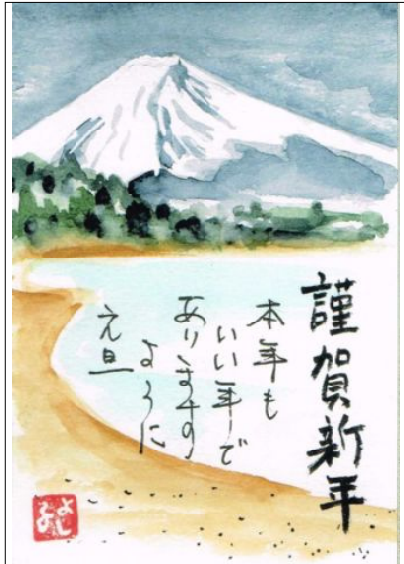 謹賀新年
本年も
いい年で
あります
ように
元旦